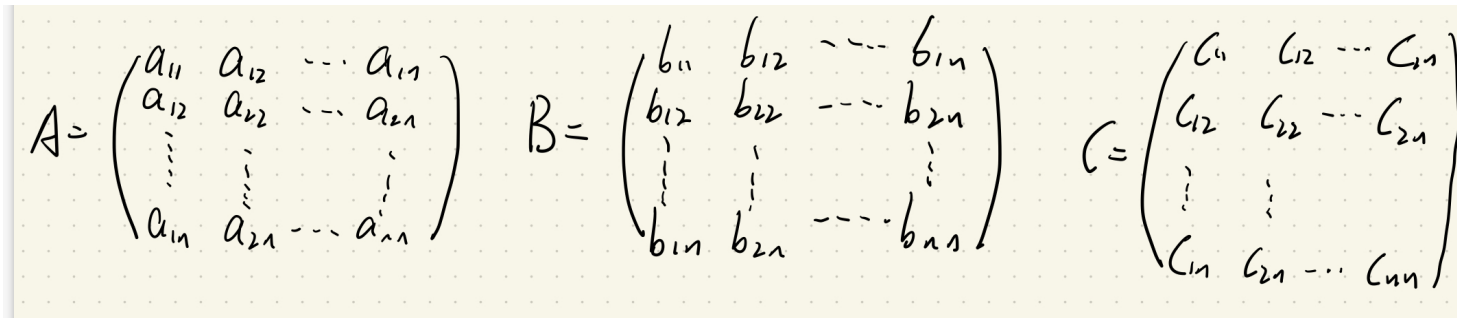 A = ( a₁₁ a₁₂ ... a₁ₙ
a₁₂ a₂₂ ... a₂ₙ
⋮ ⋮ ⋮
a₁ₙ a₂ₙ ... aₙₙ )
B = ( b₁₁ b₁₂ ... b₁ₙ
b₁₂ b₂₂ ... b₂ₙ
⋮ ⋮ ⋮
b₁ₙ b₂ₙ ... bₙₙ )
C = ( C₁₁ C₁₂ ... C₁ₙ
C₁₂ C₂₂ ... C₂ₙ
⋮ ⋮
C₁ₙ C₂ₙ ... Cₙₙ )